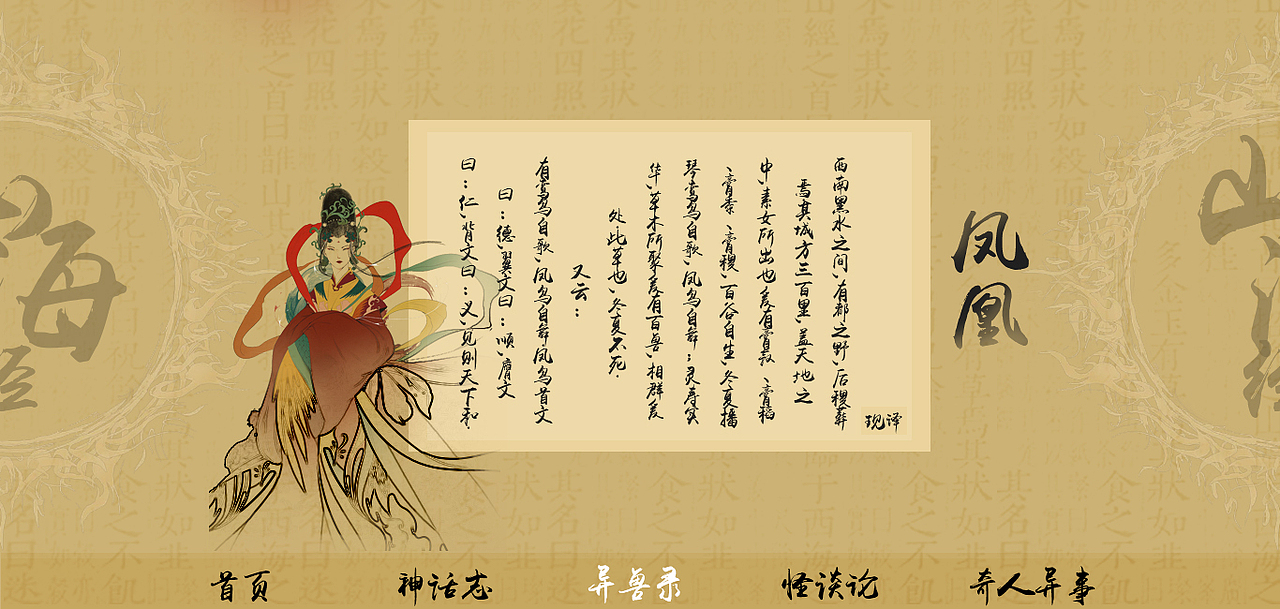 凤凰
西南黑水之间,有都之野,后稷葬
焉其城方三百里,盖天地之
中,素女所出也爰有膏菽 膏稻
膏黍 膏稷,百谷自生,冬夏播
琴鸾鸟自歌,凤鸟自舞;灵寿实
华,草木所聚爰有百兽,相群爰
处此草也,冬夏不死.
又云:
有鸾鸟自歌,凤鸟自舞凤鸟首文
曰:德,翼文曰:顺,膺文
曰:仁,背文曰:义,见则天下和.
现译
首页
神话志
异兽录
怪谈论
奇人异事